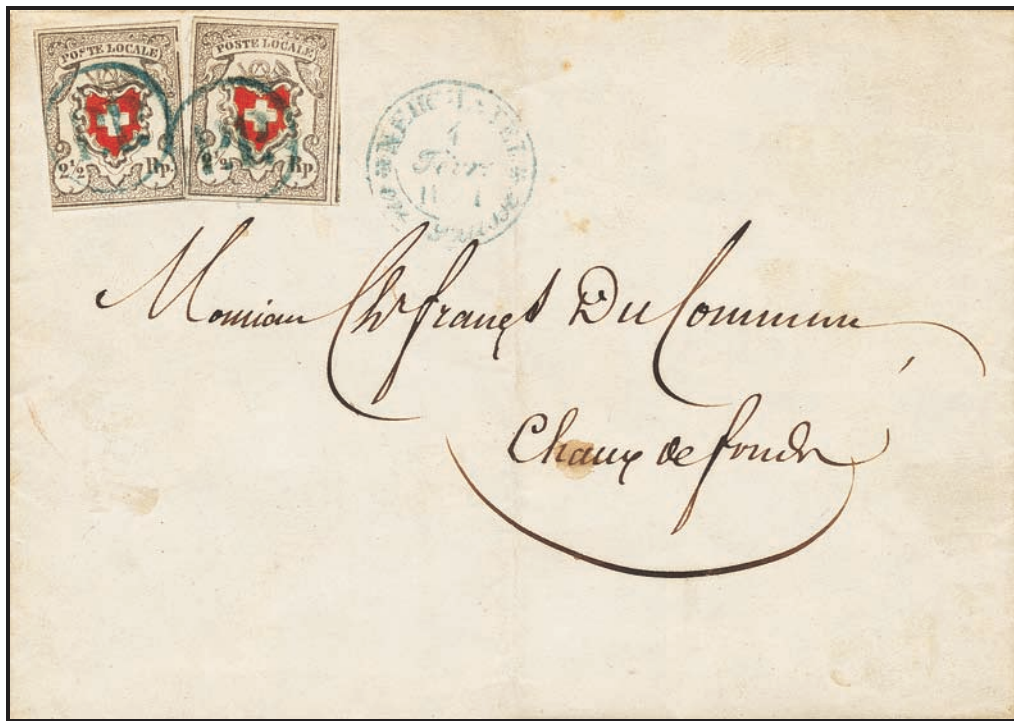 POSTE LOCALE
2 1/2 Rp.
POSTE LOCALE
2 1/2 Rp.
NEUCHATEL
1
Févr.
Suisse
Du Commun
Chaux de fonds